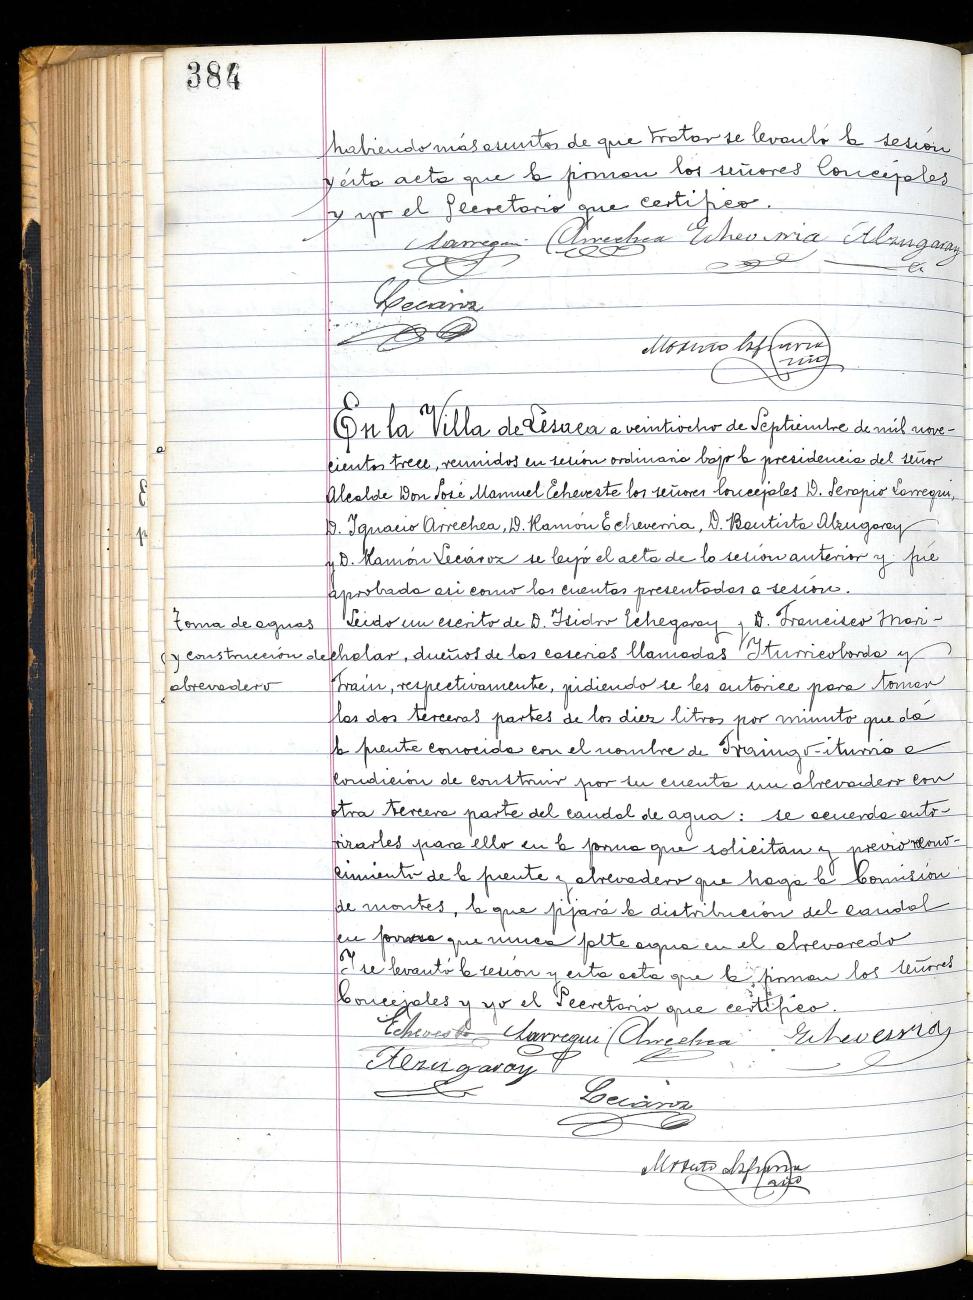 384
habiendo más asuntos de que tratar se levantó la sesión
y ésta acta que la firman los señores Concejales
y yo el Secretario que certifico.
Larregui Arrechea Echeverria Alzugaray
Lecároz
Modesto
En la Villa de Lesaca a veintiocho de Septiembre de mil nove-
cientos trece, reunidos en sesión ordinaria bajo la presidencia del señor
Alcalde Don José Manuel Echeveste los señores Concejales D. Serapio Larregui,
D. Ignacio Arrechea, D. Ramón Echeverria, D. Bautista Alzugaray
y D. Ramón Lecároz se leyó el acta de la sesión anterior y fué
aprobada asi como las cuentas presentadas a sesión.
Toma de aguas
y construcción de
abrevadero
Leido un escrito de D. Isidro Echegaray y D. Francisco Mari-
chalar, dueños de las caserias llamadas Iturricoborda y
Train, respectivamente, pidiendo se les autorice para tomar
las dos terceras partes de los diez litros por minuto que dá
la fuente conocida con el nombre de Traingo-iturria a
condición de construir por su cuenta un abrevadero con
otra tercera parte del caudal de agua: se acuerda auto-
rizarles para ello en la forma que solicitan y previo recono-
cimiento de la fuente y abrevadero que haga la Comisión
de montes, la que fijará la distribución del caudal
en forma que nunca falte agua en el abrevaredo
Y se levantó la sesión y esta acta que la firman los señores
Concejales y yo el Secretario que certifico.
Echeveste Larregui Arrechea Echeverria
Alzugaray
Lecároz
Modesto